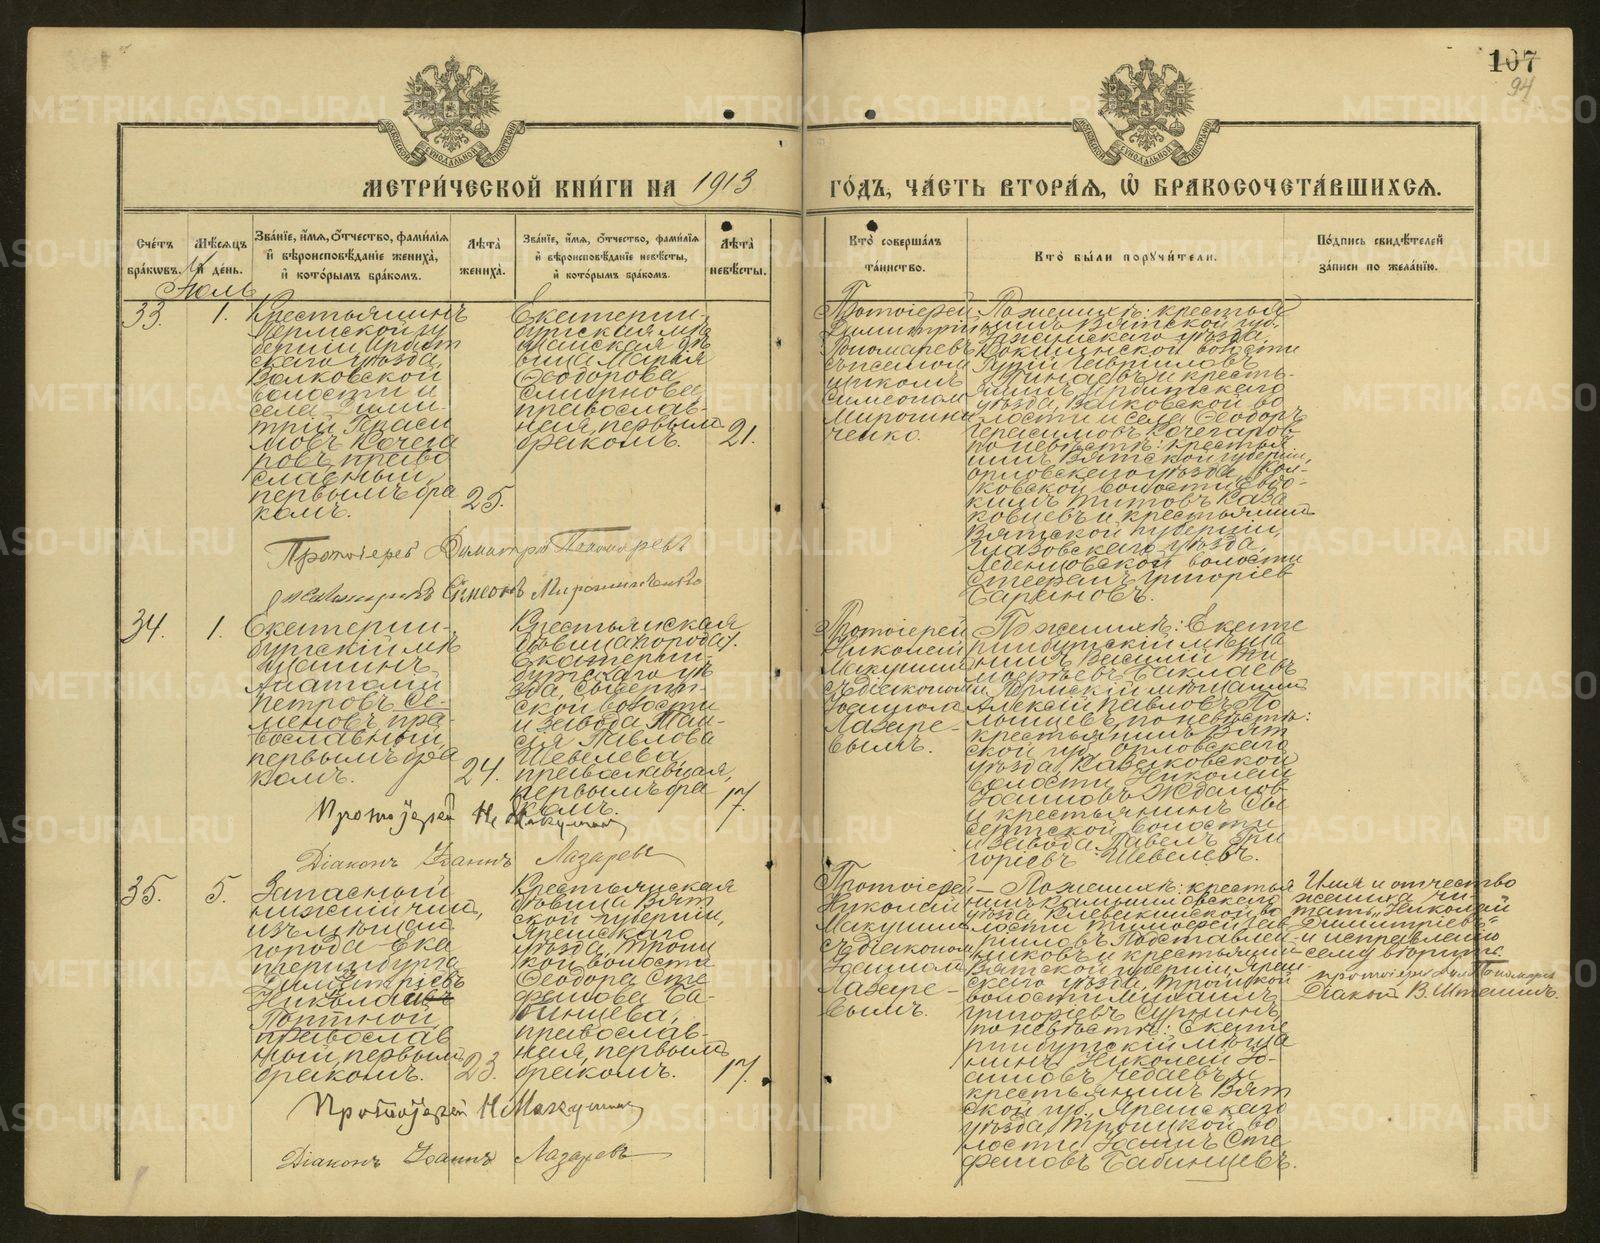 107
94
МЕТРИ́ЧЕСКОЙ КНИ́ГИ НА 1913
ГО́ДЪ, ЧА́СТЬ ВТОРА́Я, Ѽ БРАКОСОЧЕТА́ВШИХСЯ.
Сче́тъ бра́ковъ.
Мѣ́сяцъ и́ де́нь.
Зва́нїе, и́мя, ѻ́тчество, фами́лїя и́ вѣроисповѣ́данїе жениха̀, и́ кото́рымъ бра́комъ.
Лѣ́та жениха̀.
Зва́нїе, и́мя, ѻ́тчество, фами́лїя и́ вѣроисповѣ́данїе невѣ́сты, и́ кото́рымъ бра́комъ.
Лѣ́та невѣ́сты.
Кто̀ соверша́лъ та́инство.
Кто̀ бы́ли поручи́тели.
По́дпись свидѣ́телей за́писи по жела́нїю.
Іюль
33.
1.
Крестьянинъ
Пермской гу
берніи Ирбит
скаго уѣзда,
Волковской
волости и
села Дими-
трій Гераси
мовъ Кочега
ровъ, право
славный,
первымъ бра
комъ.
25.
Екатерин-
бургская мѣ
щанская дѣ
вица Марія
Ѳеодорова
Смирнова,
православ-
ная, первымъ
бракомъ.
21.
Протоіерей
Димитрій
Пономаревъ
съ псалом
щикомъ
Симеономъ
Мирошни
ченко.
По женихѣ: крестья
нинъ Вятской губ.,
Уржумскаго уѣзда,
Кокшинской волости
Гурій Гавриловъ
и кресть-
янинъ Ирбитскаго
уѣзда, Волковской во
лости и села Ѳеодоръ
Герасимовъ Кочегаровъ
по невѣстѣ: крестья
нинъ Вятской губерніи,
Орловскаго уѣзда,
ковской волости Евдо-
кимъ Титовъ Каза
ковцевъ и крестьянинъ
Вятской губерніи,
Глазовскаго уѣзда,
волости
Стефанъ Григоріевъ
Барановъ.
Протоіерей Димитрій Пономаревъ
Псаломщикъ Симеонъ Мирошниченко
34.
1.
Екатерин-
бургскій мѣ
щанинъ
Анатолій
Петровъ Се-
меновъ, пра-
вославный,
первымъ бра
комъ.
24.
Крестьянская
дѣвица города
Екатерин-
бургскаго уѣ
зда, Сысерт-
ской волости
и завода Таи-
сія Павлова
Шевелева,
православная,
первымъ бра
комъ.
17.
Протоіерей
Николай
Макушинъ
съ діакономъ
Іоанномъ
Лазаре-
вымъ.
По женихѣ: Екате
ринбургскій мѣща
нинъ Василій Ти
моѳеевъ Баклаевъ
и Пермскій мѣщанинъ
Алексѣй Павловъ По
лынцевъ, по невѣстѣ:
крестьянинъ Вят
ской губ., Орловскаго
уѣзда,
волости Николай
Іоанновъ Ждановъ
и крестьянинъ Сы
сертской волости
и завода Павелъ Гри
горіевъ Шевелевъ.
Протоіерей Н. Макушинъ
Діаконъ Іоаннъ Лазаревъ
35.
5.
Запасный
нижній чинъ,
изъ мѣщанъ
города Ека
теринбурга
Димитріевъ
Николаевъ
Портной
православ
ный, первымъ
бракомъ.
23.
Крестьянская
дѣвица Вят
ской губерніи,
Яранскаго
уѣзда, Троиц
кой волости
Ѳеодора Сте
фанова Ба-
бинцева,
православ-
ная, первымъ
бракомъ.
17.
Протоіерей
Николай
Макушинъ
съ діакономъ
Іоанномъ
Лазаре-
вымъ.
По женихѣ: крестья
нинъ Камышловскаго
уѣзда, Клевакинской во
лости Тимоѳей Гав
риловъ
и крестьянинъ
Вятской губерніи, Яран
скаго уѣзда, Троицкой
волости Михаилъ
Григоріевъ
по невѣстѣ: Екате
ринбургскій мѣща
нинъ Николай Іо-
анновъ Чебаевъ и
крестьянинъ Вят
ской губ., Яранскаго
уѣзда, Троицкой во
лости Іоаннъ Сте
фановъ Бабинцевъ.
Имя и отчество
жениха чи-
тать „Николай
Димитріевъ"
и исправленію
сему вѣрить.
протоіерей Дим. Пономаревъ
Діаконъ В.
Протоіерей Н. Макушинъ
Діаконъ Іоаннъ Лазаревъ
METRIKI.GASO-URAL.RU